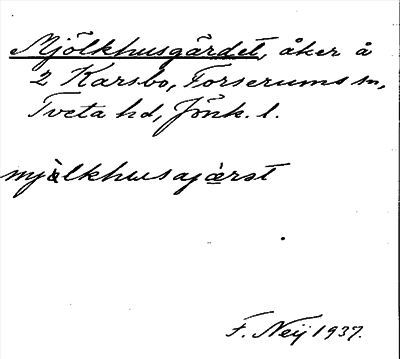 Mjölkhusgärdet, åker å
2 Karsbo, Forserums sn,
Tveta hd, Jönk. l.
mjòlkhusajàrst
F. Neij 1937.